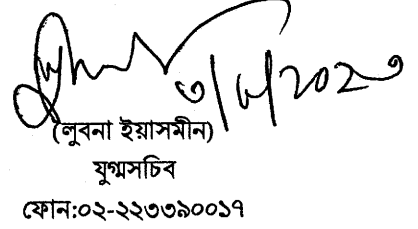 (লুবনা ইয়াসমীন)
যুগ্মসচিব
ফোন:০২-২২৩৩৯০০১৭